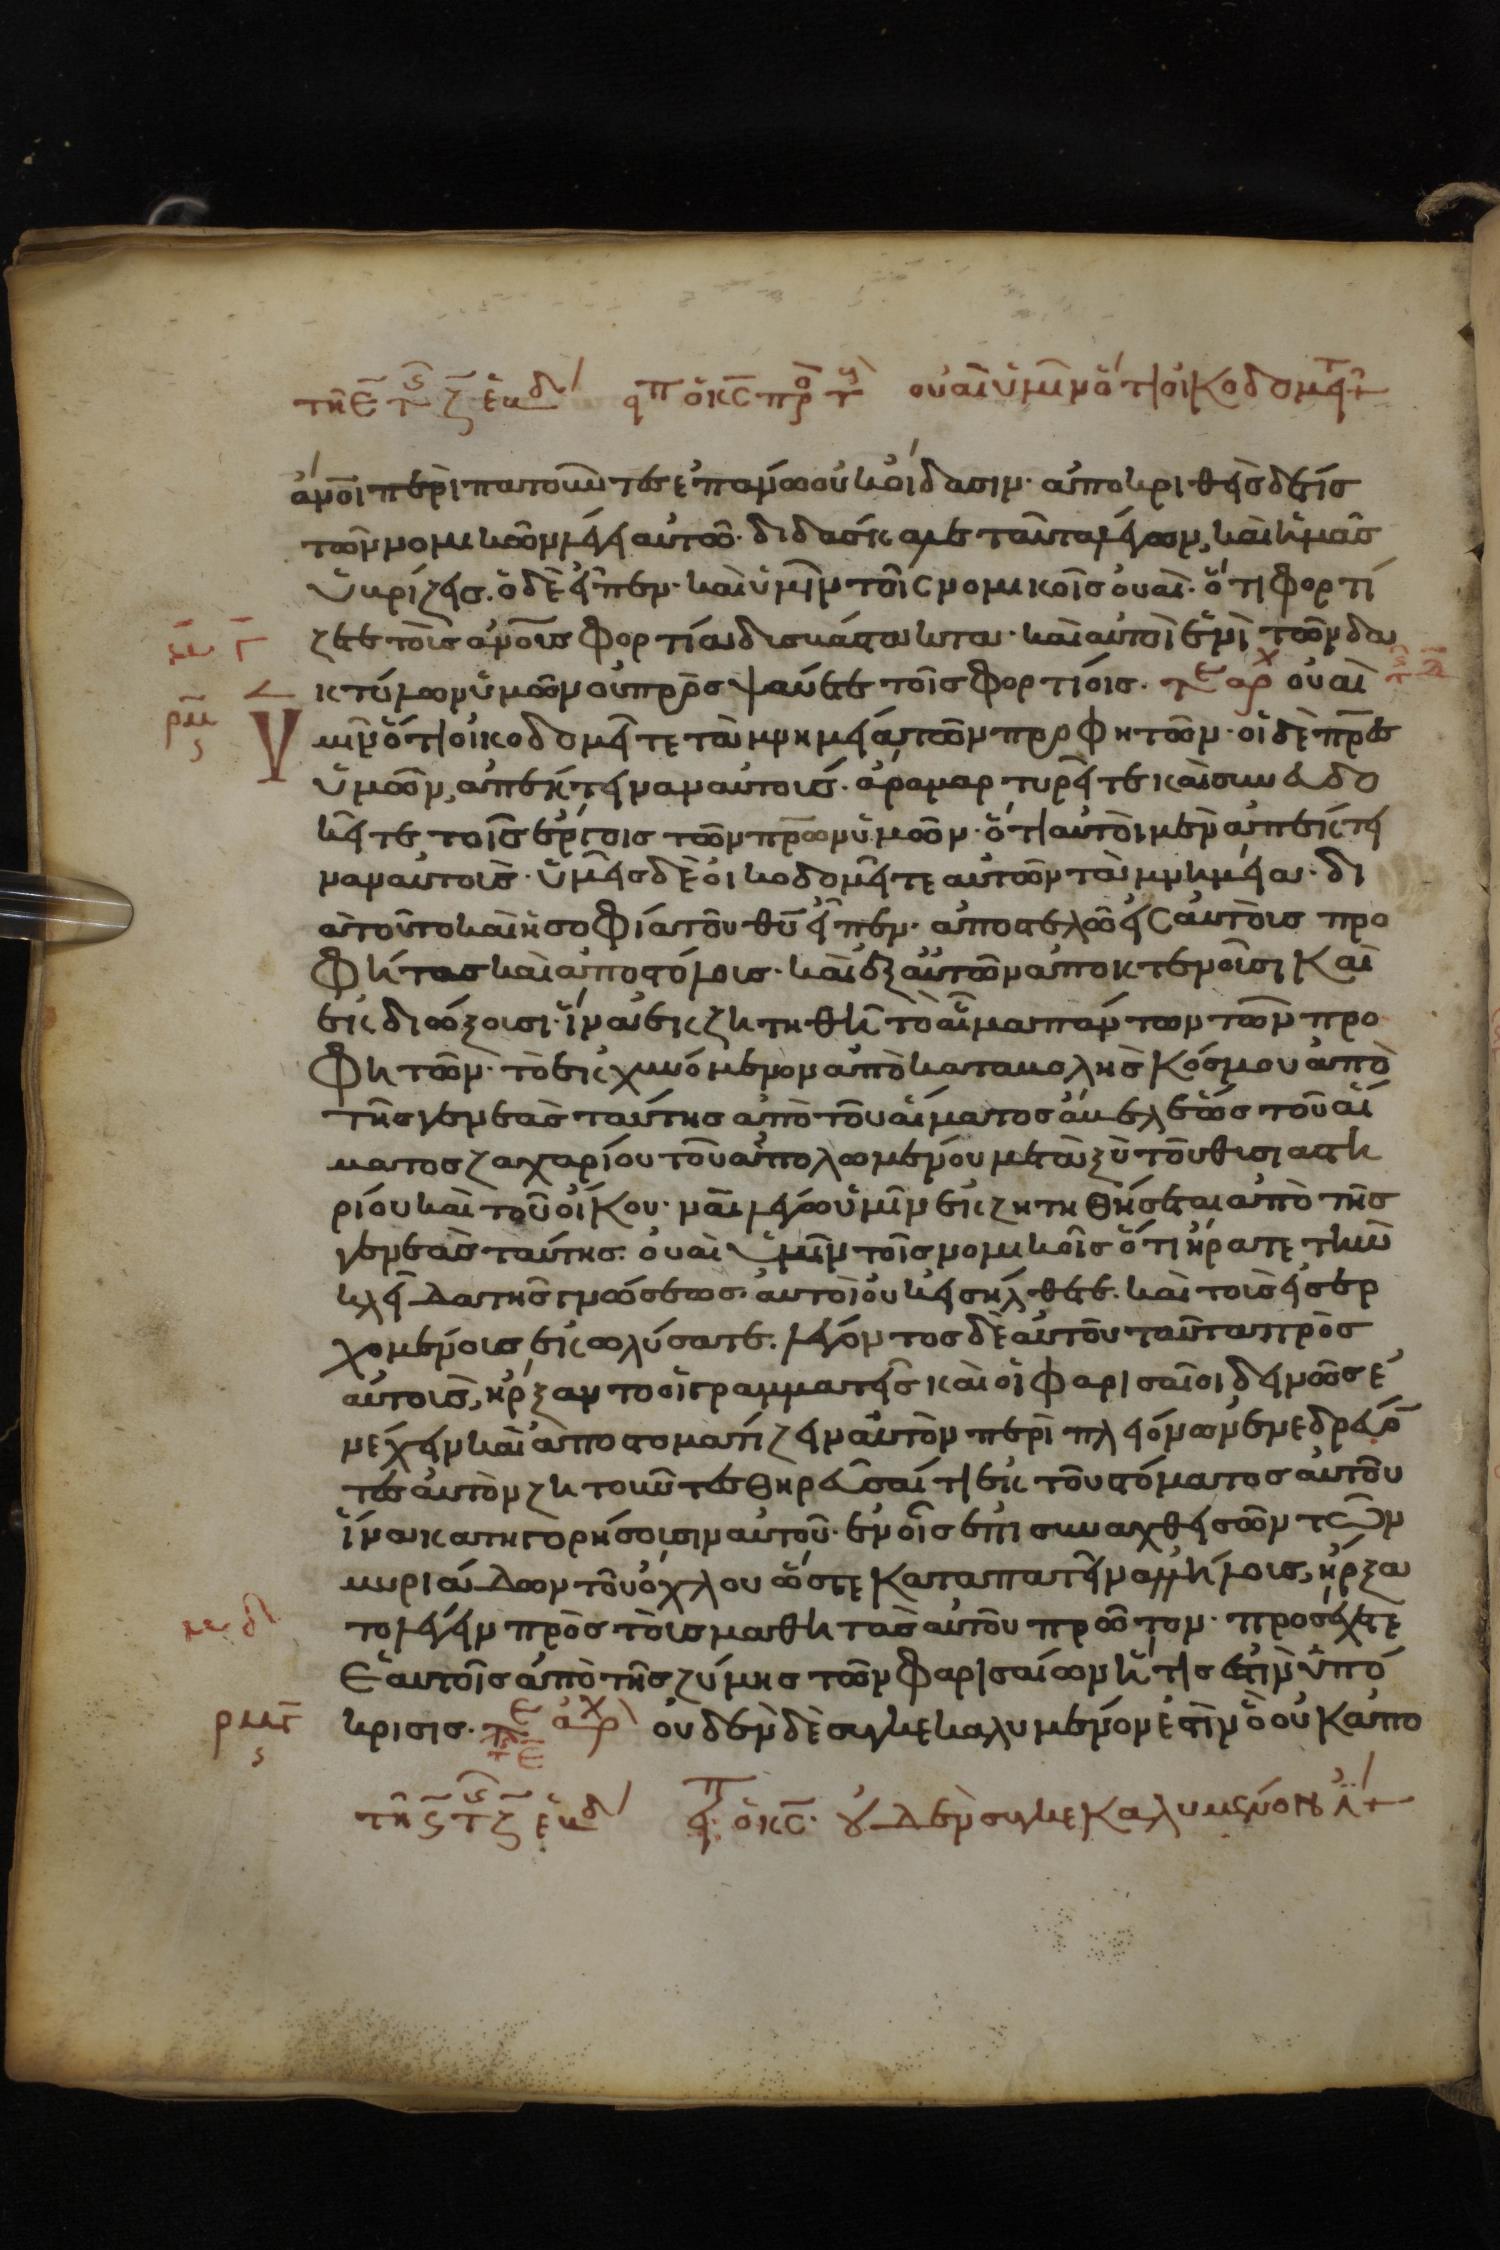 τῆ ε̅ τ ς ζ̅ ἑβδ εἶπ ὁ κ̅ς̅ πρ τ οὐαὶ ὑμῖν ὅτι οἰκοδομεῖτ
ἄν̅οι περιπατοῦντες ἐπάνω οὐκ οἴδασιν· ἀποκριθεὶς δέ τις
τῶν νομικῶν λέγει αὐτῶ· διδάσκαλε ταῦτα λέγων, καὶ ἡμᾶς
ὑβρίζεις. ὁ δὲ εἶπεν· καὶ ὑμῖν τοῖς νομικοῖς οὐαί· ὅτι φορτί
ζετε τοὺς ἀν̅ους φορτία δυσβάστακτα· καὶ αὐτοὶ ἑνὶ τῶν δα
κτύλων ὑμῶν οὐ προσψαύετε τοῖς φορτίοις. τε αρχ οὐαὶ
ὑμῖν ὅτι οἰκοδομεῖτε τὰ μνημεῖα τῶν προφητῶν· οἱ δὲ π̅ρ̅ε̅ς
ὑμῶν, ἀπέκτειναν αὐτούς. ἄρα μαρτυρεῖτε καὶ συνευδο
κεῖτε τοῖς ἔργοις τῶν π̅ρ̅ω̅ν ὑμῶν· ὅτι αὐτοὶ μὲν ἀπέκτει
ναν αὐτούς· ὑμεῖς δὲ οἰκοδομεῖτε αὐτῶν τὰ μνημεῖα· δι
ὰ τοῦτο καὶ ἡ σοφία τοῦ θ̅υ̅ εἶπεν· ἀποστελῶ εἰς αὐτοὺς προ
φήτας καὶ ἀποστόλους· καὶ ἐξ αὐτῶν ἀποκτενοῦσι καὶ
ἐκδιώξουσι· ἵνα ἐκζητηθῆ τὸ αἷμα πάντων τῶν προ
φητῶν· τὸ ἐκχυνόμενον ἀπὸ καταβολῆς κόσμου ἀπὸ
τῆς γενεᾶς ταύτης ἀπὸ τοῦ αἵματος ἄβελ ἕως τοῦ αἵ
ματος ζαχαρίου τοῦ ἀπολωμένου μεταξὺ τοῦ θυσιαστη
ρίου καὶ τοῦ οἴκου· ναὶ λέγω ὑμῖν ἐκζητηθήσεται ἀπὸ τῆς
γενεᾶς ταύτης. οὐαὶ ὑμῖν τοῖς νομικοῖς ὅτι ἤρατε τὴν
κλεῖδα τῆς γνώσεως· αὐτοὶ οὐκ εἰσήλθετε. καὶ τοὺς εἰσερ
χομένους ἐκωλύσατε. λέγοντος δὲ αὐτοῦ ταῦτα πρὸς
αὐτούς, ἤρξαντο οἱ γραμματεῖς καὶ οἱ φαρισαῖοι δεινῶς ἐ
νέχειν καὶ ἀποστοματίζειν αὐτὸν περὶ πλειόνων ἐνεδρεύο̅
τες αὐτὸν ζητοῦντες θηρεῦσαί τι ἐκ τοῦ στόματος αὐτοῦ
ἵνα κατηγορήσουσιν αὐτοῦ· ἐν οἷς ἐπισυναχθεισῶν τῶν
μυριάδων τοῦ ὄχλου ὥστε καταπατεῖν ἀλλήλους, ἤρξα
το λέγειν πρὸς τοὺς μαθητὰς αὐτοῦ πρῶτον· προσέχετε
ἑαυτοῖς ἀπὸ τῆς ζύμης τῶν φαρισαίων ἥτις ἐστὶν ὑπό
ρμζ κρισις· τε αρχ οὐδὲν δὲ συγκεκαλυμένον ἐστὶν ὃ οὐκ ἀπο
τῆ ς̅ τ ς ζ̅ ἑβδ εἶπ ὁ κ̅ς̅· οὐδὲν συγκεκαλυμένον